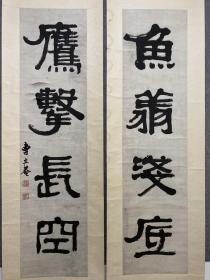 魚翔淺底
鷹擊長空